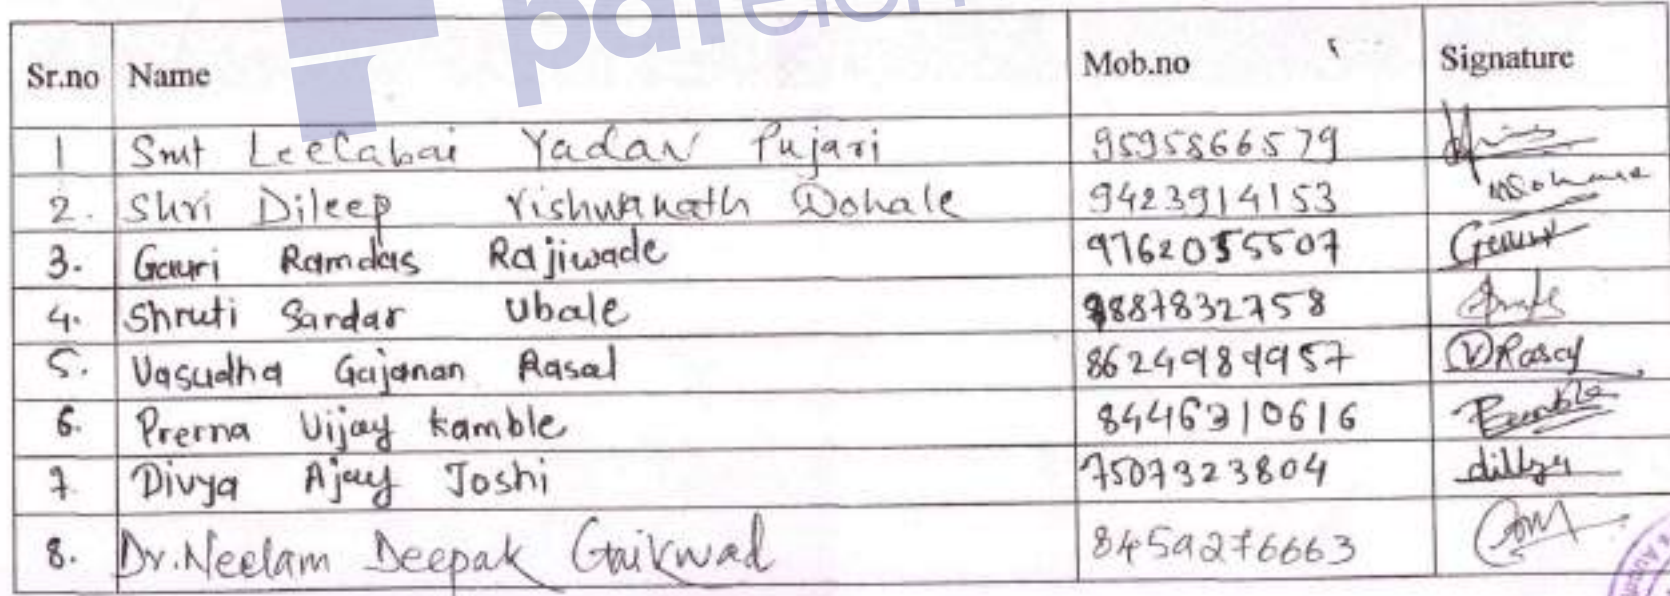 Sr.no Name Mob.no Signature
1 Smt Leelabai Yadav Pujari 9595866579
2. Shri Dileep Vishwanath Dohale 9423914153
3. Gauri Ramdas Rajiwade 9762055507
4. Shruti Sardar Ubale 9887832758
5. Vasudha Gajanan Rasal 8624989957 VRasal
6. Prerna Vijay Kamble 8446310616
7. Divya Ajay Joshi 7507323804
8. Dr.Neelam Deepak Gaikwad 8459276663